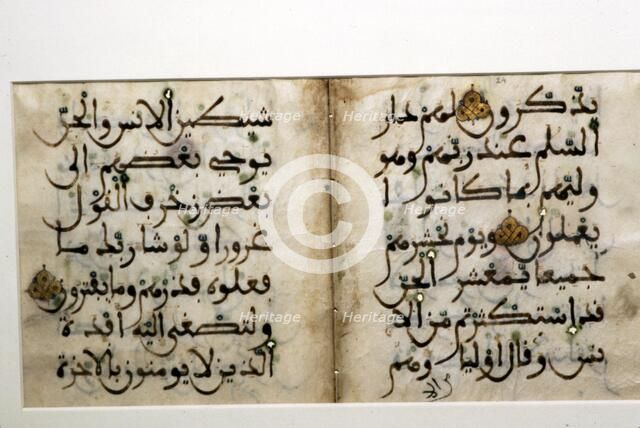 24
يذكرون لهم دار
السلم عند ربهم وهو
وليهم بما كانوا
يعملون ويوم نحشرهم
جميعا يمعشر الجن
قد استكثرتم من الا
نس وقال اوليا وهم
شيطين الانس والجن
يوحي بعضهم الى
بعض زخرف القول
غرورا ولو شا ربك ما
فعلوه فذرهم وما يفترون
ولتصغى اليه افدة
الذين لا يومنون بالاخرة
Heritage
Heritage
Heritage
Heritage
Heritage
Heritage
Heritage
Heritage
©